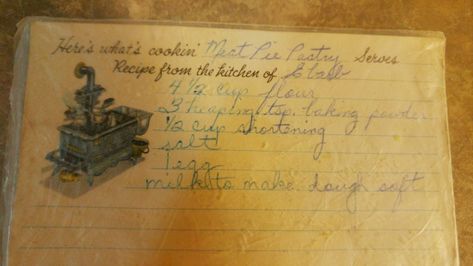 Here's what's cookin' Meat Pie Pastry Serves
Recipe from the kitchen of
4 1/2 cup flour
3 heaping tsp. baking powder
1/2 cup shortening
salt
1 egg
milk to make dough soft